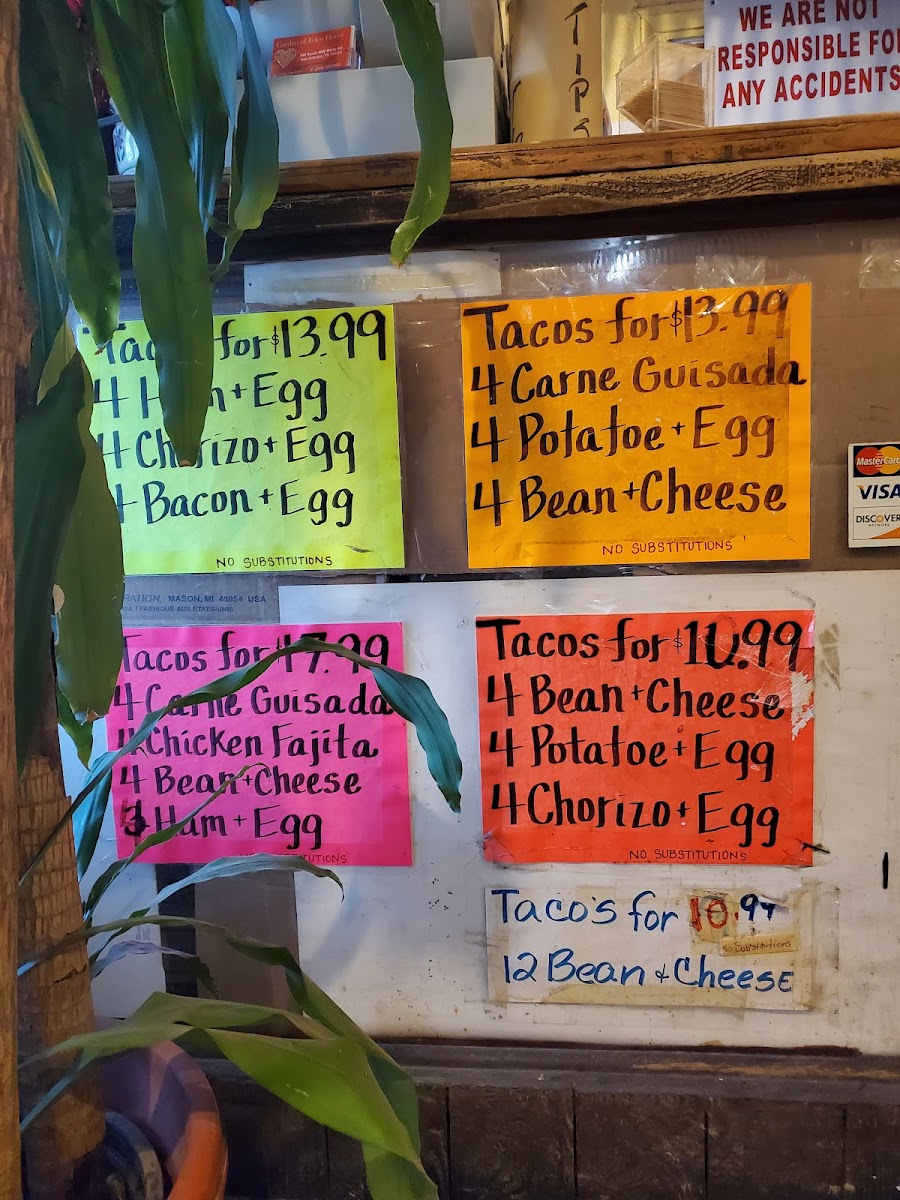 Garden of Eden Florist
TIPS
WE ARE NOT
RESPONSIBLE FOR
ANY ACCIDENTS
for $13.99
4 + Egg
4 Chorizo + Egg
4 Bacon + Egg
NO SUBSTITUTIONS
Tacos for $13.99
4 Carne Guisada
4 Potatoe + Egg
4 Bean + Cheese
NO SUBSTITUTIONS
MasterCard
VISA
DISCOVER
NETWORK
MASON, MI 48854 USA
Tacos for $17.99
4 Carne Guisada
4 Chicken Fajita
4 Bean + Cheese
3 Ham + Egg
Tacos for $10.99
4 Bean + Cheese
4 Potatoe + Egg
4 Chorizo + Egg
NO SUBSTITUTIONS
Taco's for 10.97
No Substitutions
12 Bean & Cheese